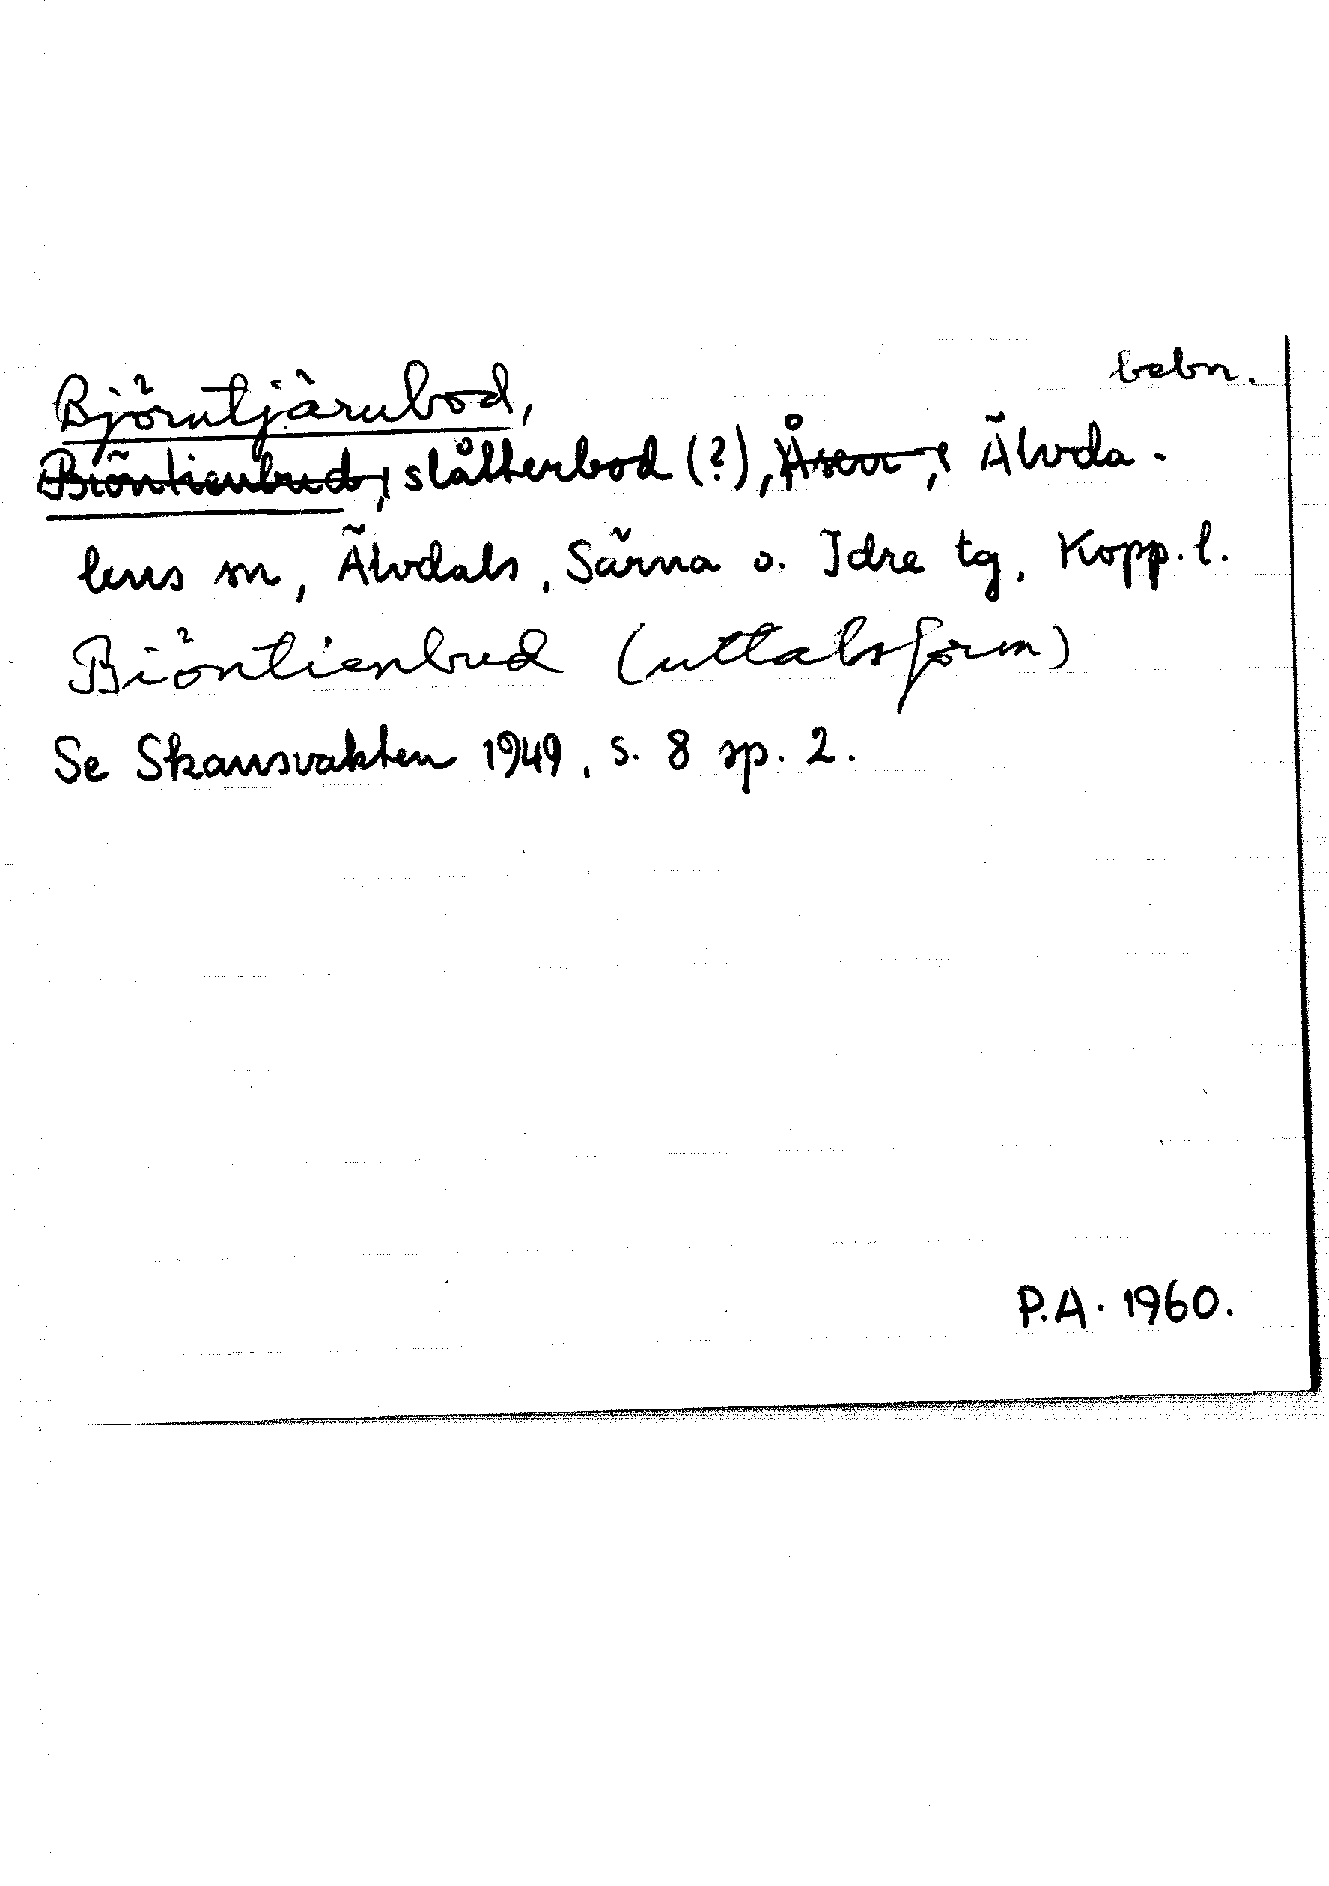 bebn.
Björntjärnbod,
Biöntienbud, slåtterbod (?), Åsen, Älvda-
lens sn, Älvdals, Särna o. Idre tg, Kopp. l.
Biöntienbud (uttalsform)
Se Skansvakten 1949, s. 8 sp. 2.
P.A. 1960.